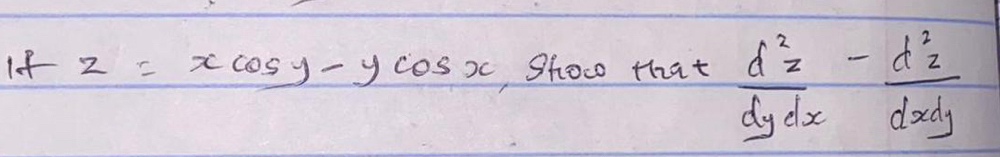 If z = x cos y - y cos x, Show that d²z/dydx - d²z/dxdy